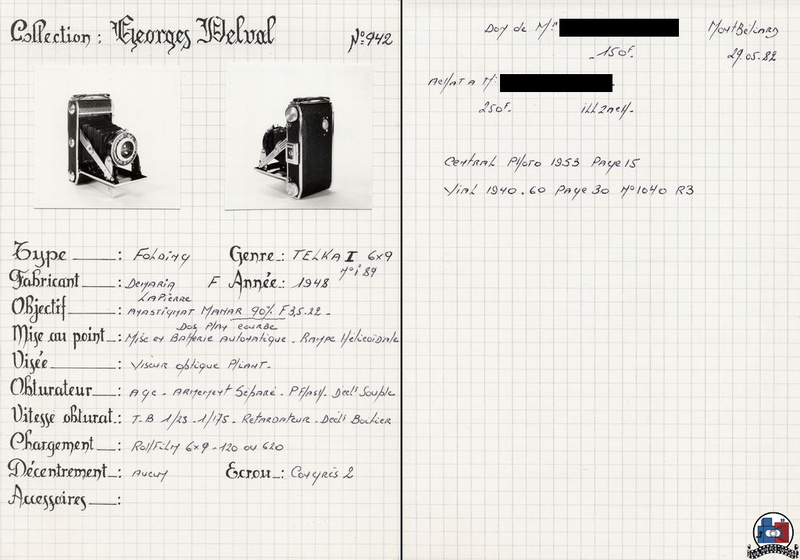 Collection : Georges Delval N° 942
Type : Folding Genre : TELKA I 6x9
N° i 89
Fabricant : Demaria F Année : 1948
LaPierre
Objectif : Anastigmat MANAR 90% F 3,5.22 -
Dos Plan courbe
Mise au point : Mise en Batterie Automatique . Rampe Hélicoïdale
Visée : Viseur optique Pliant .
Obturateur : Age - Armement Séparé . P Flash . Declt Souple
Vitesse obturat. : T-B 1/25 - 1/175 - Retardateur - Declt Boitier
Chargement : Rollfilm 6x9 - 120 ou 620
Décentrement : Aucun Ecrou : Congrès 2
Accessoires :
Don de Mr Montbéliard
150F. 29.05.82
Achat a Mr
250F.
Central Photo 1953 Page 15
Vial 1940.60 Page 30 N° 1040 R3